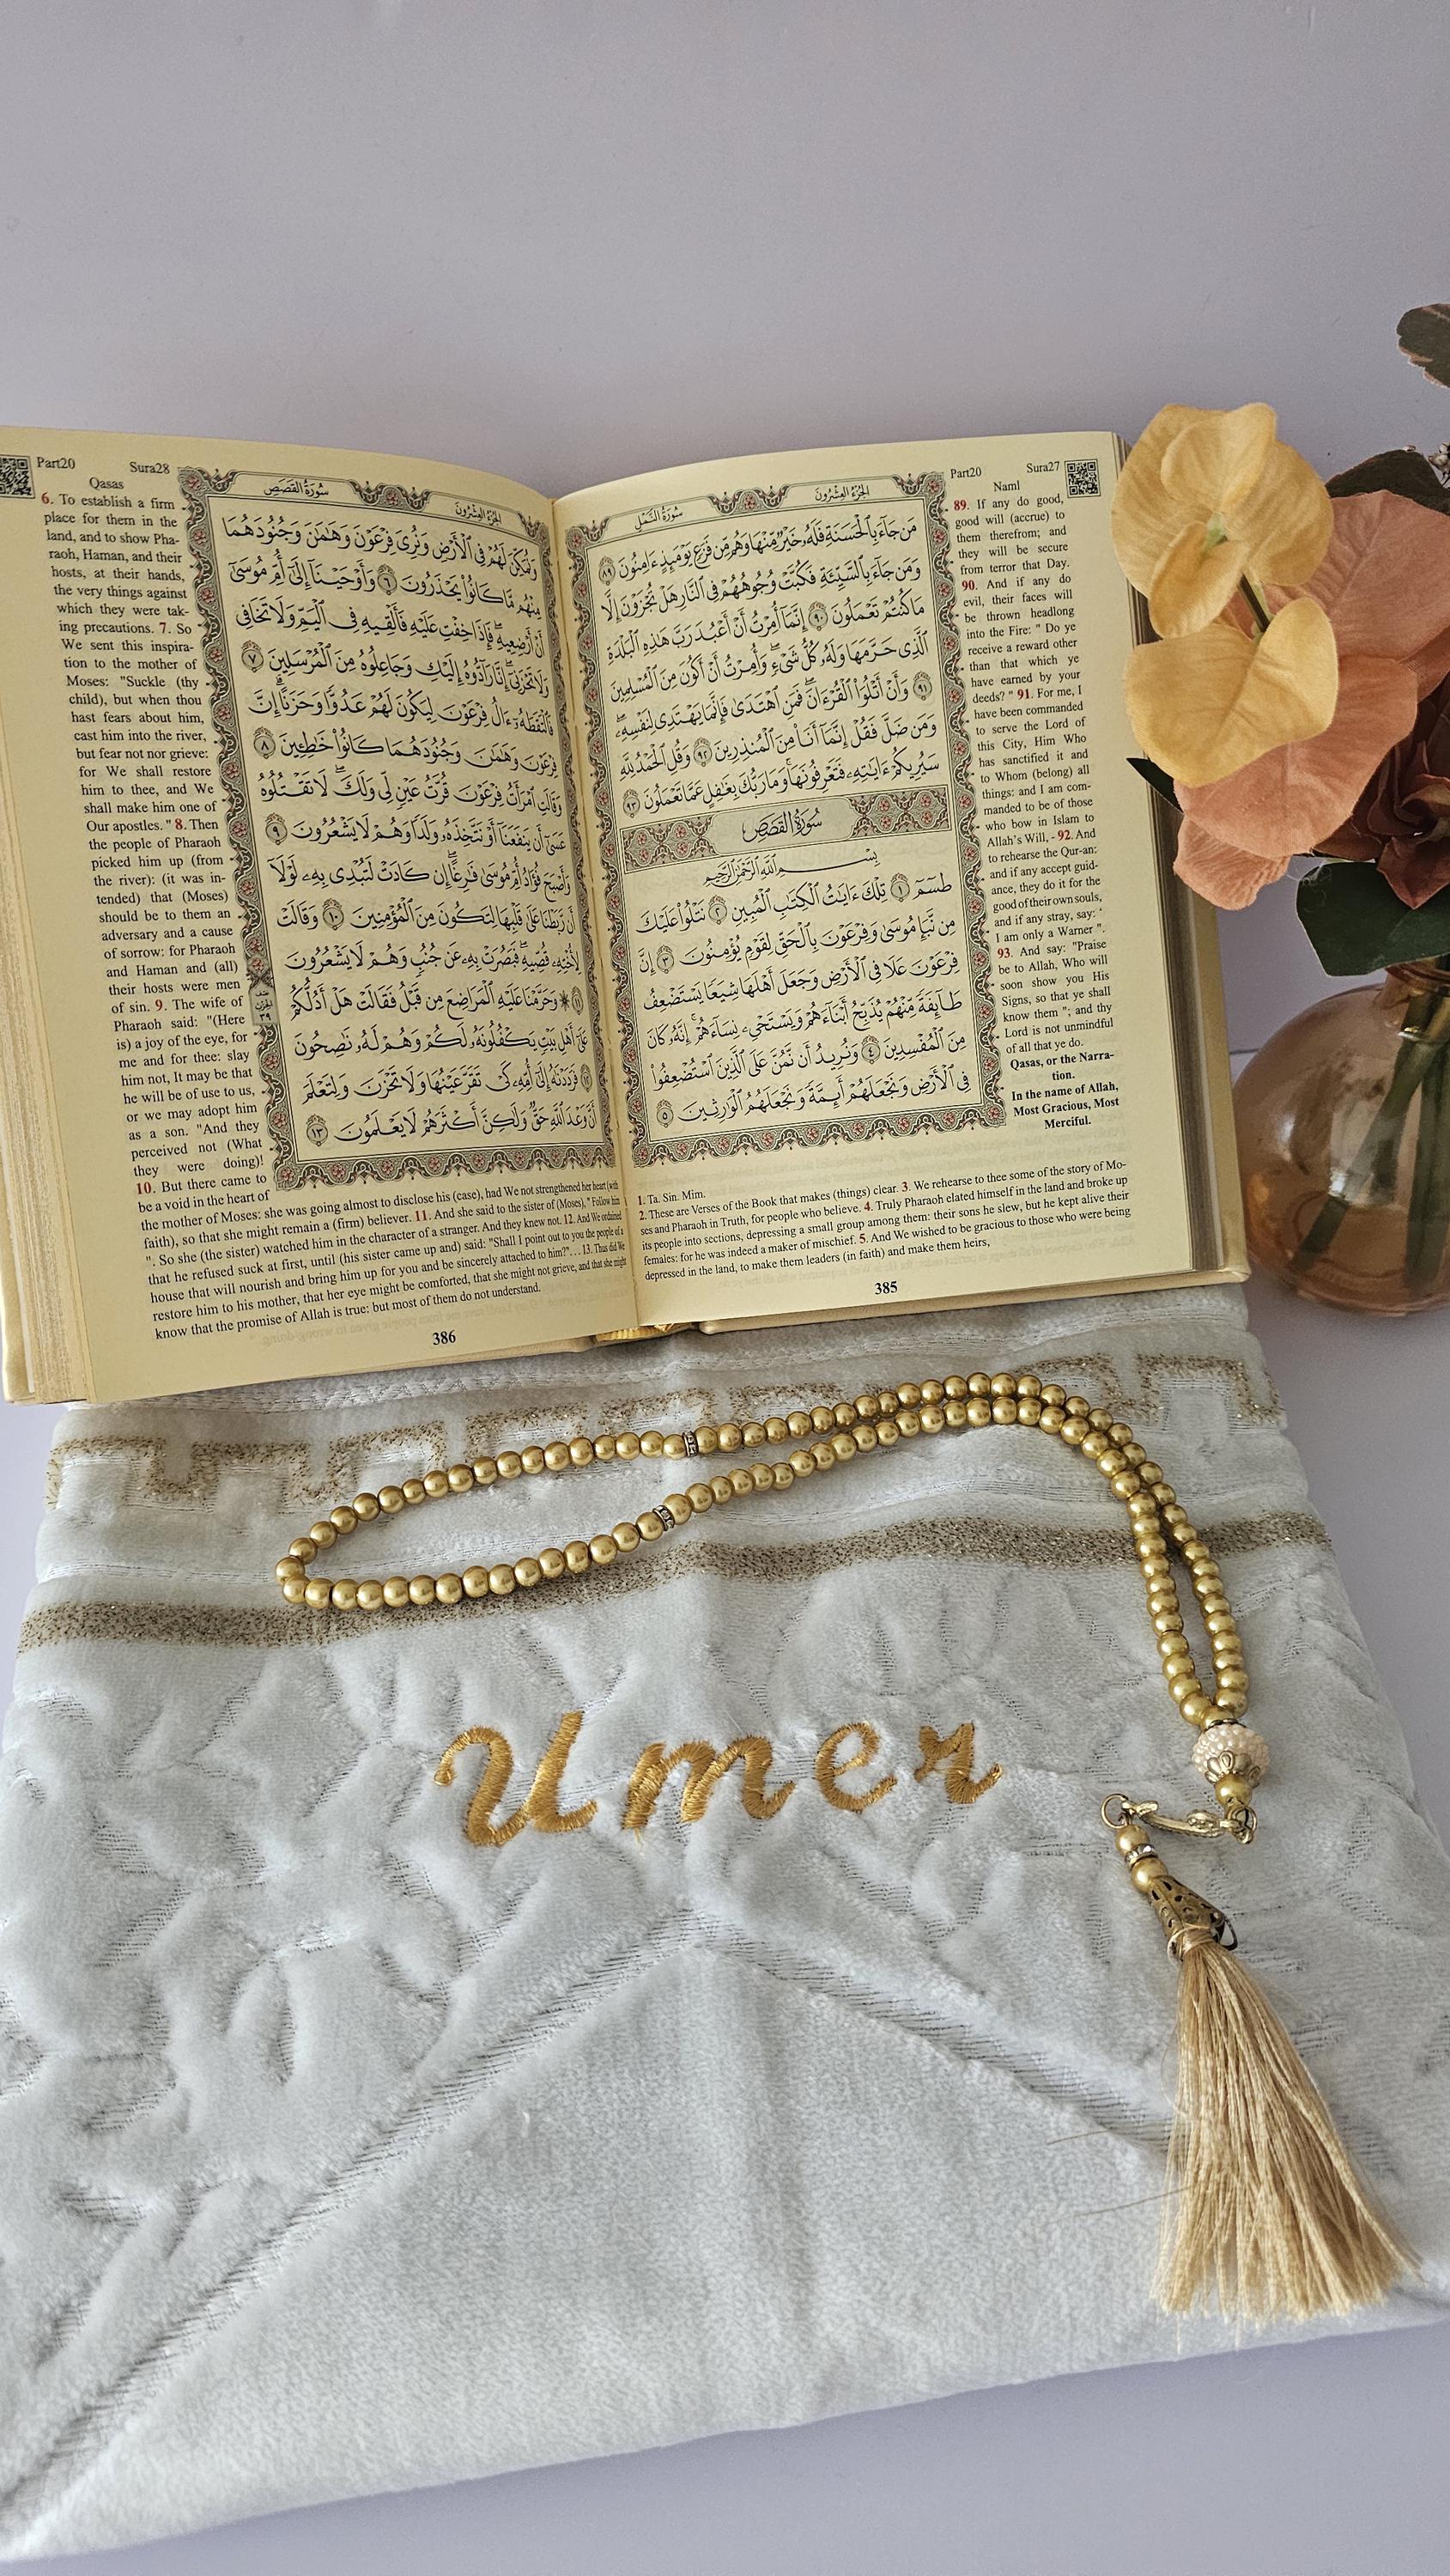 Part20 Sura27
Naml
الجُزْءُ العِشْرُونَ سُورَةُ النَّمْلِ
مَن جَآءَ بِٱلْحَسَنَةِ فَلَهُۥ خَيْرٌ مِّنْهَا وَهُم مِّن فَزَعٍ يَوْمَئِذٍ ءَامِنُونَ ٨٩
وَمَن جَآءَ بِٱلسَّيِّئَةِ فَكُبَّتْ وُجُوهُهُمْ فِى ٱلنَّارِ هَلْ تُجْزَوْنَ إِلَّا
مَا كُنتُمْ تَعْمَلُونَ ٩٠ إِنَّمَآ أُمِرْتُ أَنْ أَعْبُدَ رَبَّ هَٰذِهِ ٱلْبَلْدَةِ
ٱلَّذِى حَرَّمَهَا وَلَهُۥ كُلُّ شَىْءٍ ۖ وَأُمِرْتُ أَنْ أَكُونَ مِنَ ٱلْمُسْلِمِينَ
٩١ وَأَنْ أَتْلُوَا۟ ٱلْقُرْءَانَ ۖ فَمَنِ ٱهْتَدَىٰ فَإِنَّمَا يَهْتَدِى لِنَفْسِهِۦ ۖ
وَمَن ضَلَّ فَقُلْ إِنَّمَآ أَنَا۠ مِنَ ٱلْمُنذِرِينَ ٩٢ وَقُلِ ٱلْحَمْدُ لِلَّهِ
سَيُرِيكُمْ ءَايَٰتِهِۦ فَتَعْرِفُونَهَا ۚ وَمَا رَبُّكَ بِغَٰفِلٍ عَمَّا تَعْمَلُونَ ٩٣
سُورَةُ القَصَصِ
بِسْمِ ٱللَّهِ ٱلرَّحْمَٰنِ ٱلرَّحِيمِ
طسٓمٓ ١ تِلْكَ ءَايَٰتُ ٱلْكِتَٰبِ ٱلْمُبِينِ ٢ نَتْلُوا۟ عَلَيْكَ
مِن نَّبَإِ مُوسَىٰ وَفِرْعَوْنَ بِٱلْحَقِّ لِقَوْمٍ يُؤْمِنُونَ ٣ إِنَّ
فِرْعَوْنَ عَلَا فِى ٱلْأَرْضِ وَجَعَلَ أَهْلَهَا شِيَعًا يَسْتَضْعِفُ
طَآئِفَةً مِّنْهُمْ يُذَبِّحُ أَبْنَآءَهُمْ وَيَسْتَحْىِۦ نِسَآءَهُمْ ۚ إِنَّهُۥ كَانَ
مِنَ ٱلْمُفْسِدِينَ ٤ وَنُرِيدُ أَن نَّمُنَّ عَلَى ٱلَّذِينَ ٱسْتُضْعِفُوا۟
فِى ٱلْأَرْضِ وَنَجْعَلَهُمْ أَئِمَّةً وَنَجْعَلَهُمُ ٱلْوَٰرِثِينَ ٥
89. If any do good,
good will (accrue) to
them therefrom; and
they will be secure
from terror that Day.
90. And if any do
evil, their faces will
be thrown headlong
into the Fire: " Do ye
receive a reward other
than that which ye
have earned by your
deeds? " 91. For me, I
have been commanded
to serve the Lord of
this City, Him Who
has sanctified it and
to Whom (belong) all
things: and I am com-
manded to be of those
who bow in Islam to
Allah's Will, - 92. And
to rehearse the Qur-an:
and if any accept guid-
ance, they do it for the
good of their own souls,
and if any stray, say: '
I am only a Warner ".
93. And say: "Praise
be to Allah, Who will
soon show you His
Signs, so that ye shall
know them "; and thy
Lord is not unmindful
of all that ye do.
Qasas, or the Narra-
tion.
In the name of Allah,
Most Gracious, Most
Merciful.
1. Ta. Sin. Mim.
2. These are Verses of the Book that makes (things) clear. 3. We rehearse to thee some of the story of Mo-
ses and Pharaoh in Truth, for people who believe. 4. Truly Pharaoh elated himself in the land and broke up
its people into sections, depressing a small group among them: their sons he slew, but he kept alive their
females: for he was indeed a maker of mischief. 5. And We wished to be gracious to those who were being
depressed in the land, to make them leaders (in faith) and make them heirs,
385
Part20 Sura28
Qasas
الجُزْءُ العِشْرُونَ سُورَةُ القَصَصِ
وَنُمَكِّنَ لَهُمْ فِى ٱلْأَرْضِ وَنُرِىَ فِرْعَوْنَ وَهَٰمَٰنَ وَجُنُودَهُمَا
مِنْهُم مَّا كَانُوا۟ يَحْذَرُونَ ٦ وَأَوْحَيْنَآ إِلَىٰٓ أُمِّ مُوسَىٰٓ
أَنْ أَرْضِعِيهِ ۖ فَإِذَا خِفْتِ عَلَيْهِ فَأَلْقِيهِ فِى ٱلْيَمِّ وَلَا تَخَافِى
وَلَا تَحْزَنِىٓ ۖ إِنَّا رَآدُّوهُ إِلَيْكِ وَجَاعِلُوهُ مِنَ ٱلْمُرْسَلِينَ ٧
فَٱلْتَقَطَهُۥٓ ءَالُ فِرْعَوْنَ لِيَكُونَ لَهُمْ عَدُوًّا وَحَزَنًا ۗ إِنَّ
فِرْعَوْنَ وَهَٰمَٰنَ وَجُنُودَهُمَا كَانُوا۟ خَٰطِـِٔينَ ٨
وَقَالَتِ ٱمْرَأَتُ فِرْعَوْنَ قُرَّتُ عَيْنٍ لِّى وَلَكَ ۖ لَا تَقْتُلُوهُ
عَسَىٰٓ أَن يَنفَعَنَآ أَوْ نَتَّخِذَهُۥ وَلَدًا وَهُمْ لَا يَشْعُرُونَ ٩
وَأَصْبَحَ فُؤَادُ أُمِّ مُوسَىٰ فَٰرِغًا ۖ إِن كَادَتْ لَتُبْدِى بِهِۦ لَوْلَآ
أَن رَّبَطْنَا عَلَىٰ قَلْبِهَا لِتَكُونَ مِنَ ٱلْمُؤْمِنِينَ ١٠ وَقَالَتْ
لِأُخْتِهِۦ قُصِّيهِ ۖ فَبَصُرَتْ بِهِۦ عَن جُنُبٍ وَهُمْ لَا يَشْعُرُونَ
١١ ۞ وَحَرَّمْنَا عَلَيْهِ ٱلْمَرَاضِعَ مِن قَبْلُ فَقَالَتْ هَلْ أَدُلُّكُمْ
عَلَىٰٓ أَهْلِ بَيْتٍ يَكْفُلُونَهُۥ لَكُمْ وَهُمْ لَهُۥ نَٰصِحُونَ
١٢ فَرَدَدْنَٰهُ إِلَىٰٓ أُمِّهِۦ كَىْ تَقَرَّ عَيْنُهَا وَلَا تَحْزَنَ وَلِتَعْلَمَ
أَنَّ وَعْدَ ٱللَّهِ حَقٌّ وَلَٰكِنَّ أَكْثَرَهُمْ لَا يَعْلَمُونَ ١٣
نصف
الحزب
٣٩
6. To establish a firm
place for them in the
land, and to show Pha-
raoh, Haman, and their
hosts, at their hands,
the very things against
which they were tak-
ing precautions. 7. So
We sent this inspira-
tion to the mother of
Moses: "Suckle (thy
child), but when thou
hast fears about him,
cast him into the river,
but fear not nor grieve:
for We shall restore
him to thee, and We
shall make him one of
Our apostles. " 8. Then
the people of Pharaoh
picked him up (from
the river): (it was in-
tended) that (Moses)
should be to them an
adversary and a cause
of sorrow: for Pharaoh
and Haman and (all)
their hosts were men
of sin. 9. The wife of
Pharaoh said: "(Here
is) a joy of the eye, for
me and for thee: slay
him not, It may be that
he will be of use to us,
or we may adopt him
as a son. "And they
perceived not (What
they were doing)!
10. But there came to
be a void in the heart of
the mother of Moses: she was going almost to disclose his (case), had We not strengthened her heart (with
faith), so that she might remain a (firm) believer. 11. And she said to the sister of (Moses), " Follow him
". So she (the sister) watched him in the character of a stranger. And they knew not. 12. And We ordained
that he refused suck at first, until (his sister came up and) said: "Shall I point out to you the people of a
house that will nourish and bring him up for you and be sincerely attached to him?"... 13. Thus did We
restore him to his mother, that her eye might be comforted, that she might not grieve, and that she might
know that the promise of Allah is true: but most of them do not understand.
386
Umer